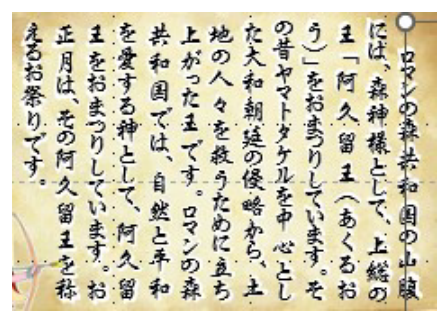 ロマンの森共和国の山腹
には、森神様として、上総の
王「阿久留王（あくるお
う）」をおまつりしています。そ
の昔ヤマトタケルを中心とし
た大和朝廷の侵略から、土
地の人々を救うために立ち
上がった王です。ロマンの森
共和国では、自然と平和
を愛する神として、阿久留
王をおまつりしています。お
正月は、その阿久留王を称
えるお祭りです。